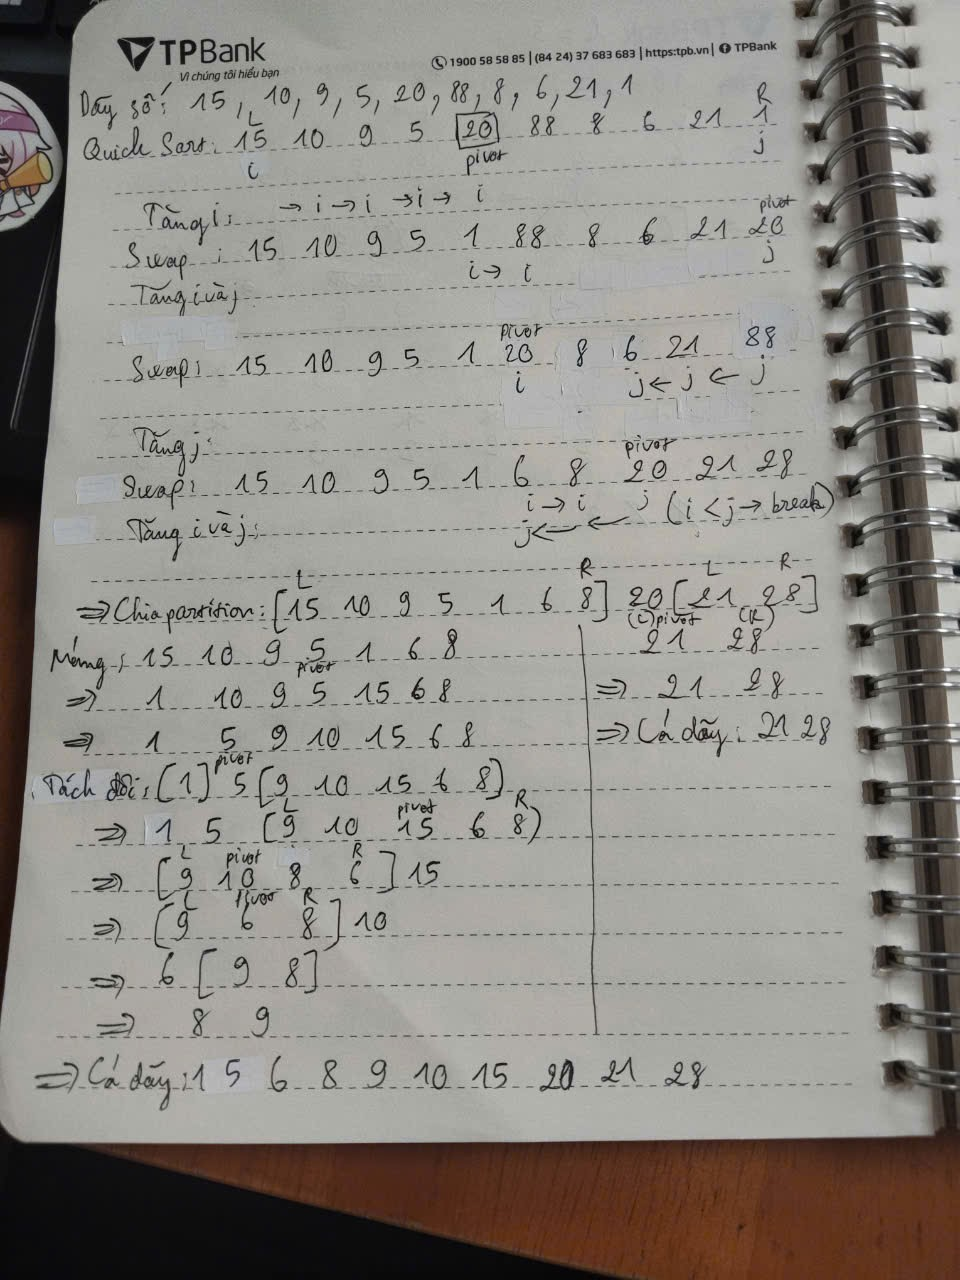 TPBank
Vì chúng tôi hiểu bạn
1900 58 58 85 | (84 24) 37 683 683 | https:tpb.vn | TPBank
Dãy số: 15, 10, 9, 5, 20, 88, 8, 6, 21, 1
L R
Quick Sart: 15 10 9 5 20 88 8 6 21 1
i pivot j
Tăng i: → i → i → i → i
pivot
Swap: 15 10 9 5 1 88 8 6 21 20
i → i j
Tăng i và j
pivot
Swap: 15 10 9 5 1 20 8 6 21 88
i j ← j ← j
Tăng j:
pivot
Swap: 15 10 9 5 1 6 8 20 21 28
i → i j (i < j → break)
Tăng i và j: j ← ←
L R L R
⇒ Chia partition: [15 10 9 5 1 6 8] 20 [21 28]
(L) pivot (R)
Mảng: 15 10 9 5 1 6 8 21 28
pivot
⇒ 1 10 9 5 15 6 8 ⇒ 21 28
⇒ 1 5 9 10 15 6 8 ⇒ Cả dãy: 21 28
pivot
Tách đôi: [1] 5 [9 10 15 6 8]
L pivot R
⇒ 1 5 [9 10 15 6 8)
L pivot R
⇒ [9 10 8 6] 15
L pivot R
⇒ [9 6 8] 10
⇒ 6 [9 8]
⇒ 8 9
⇒ Cả dãy: 1 5 6 8 9 10 15 20 21 28